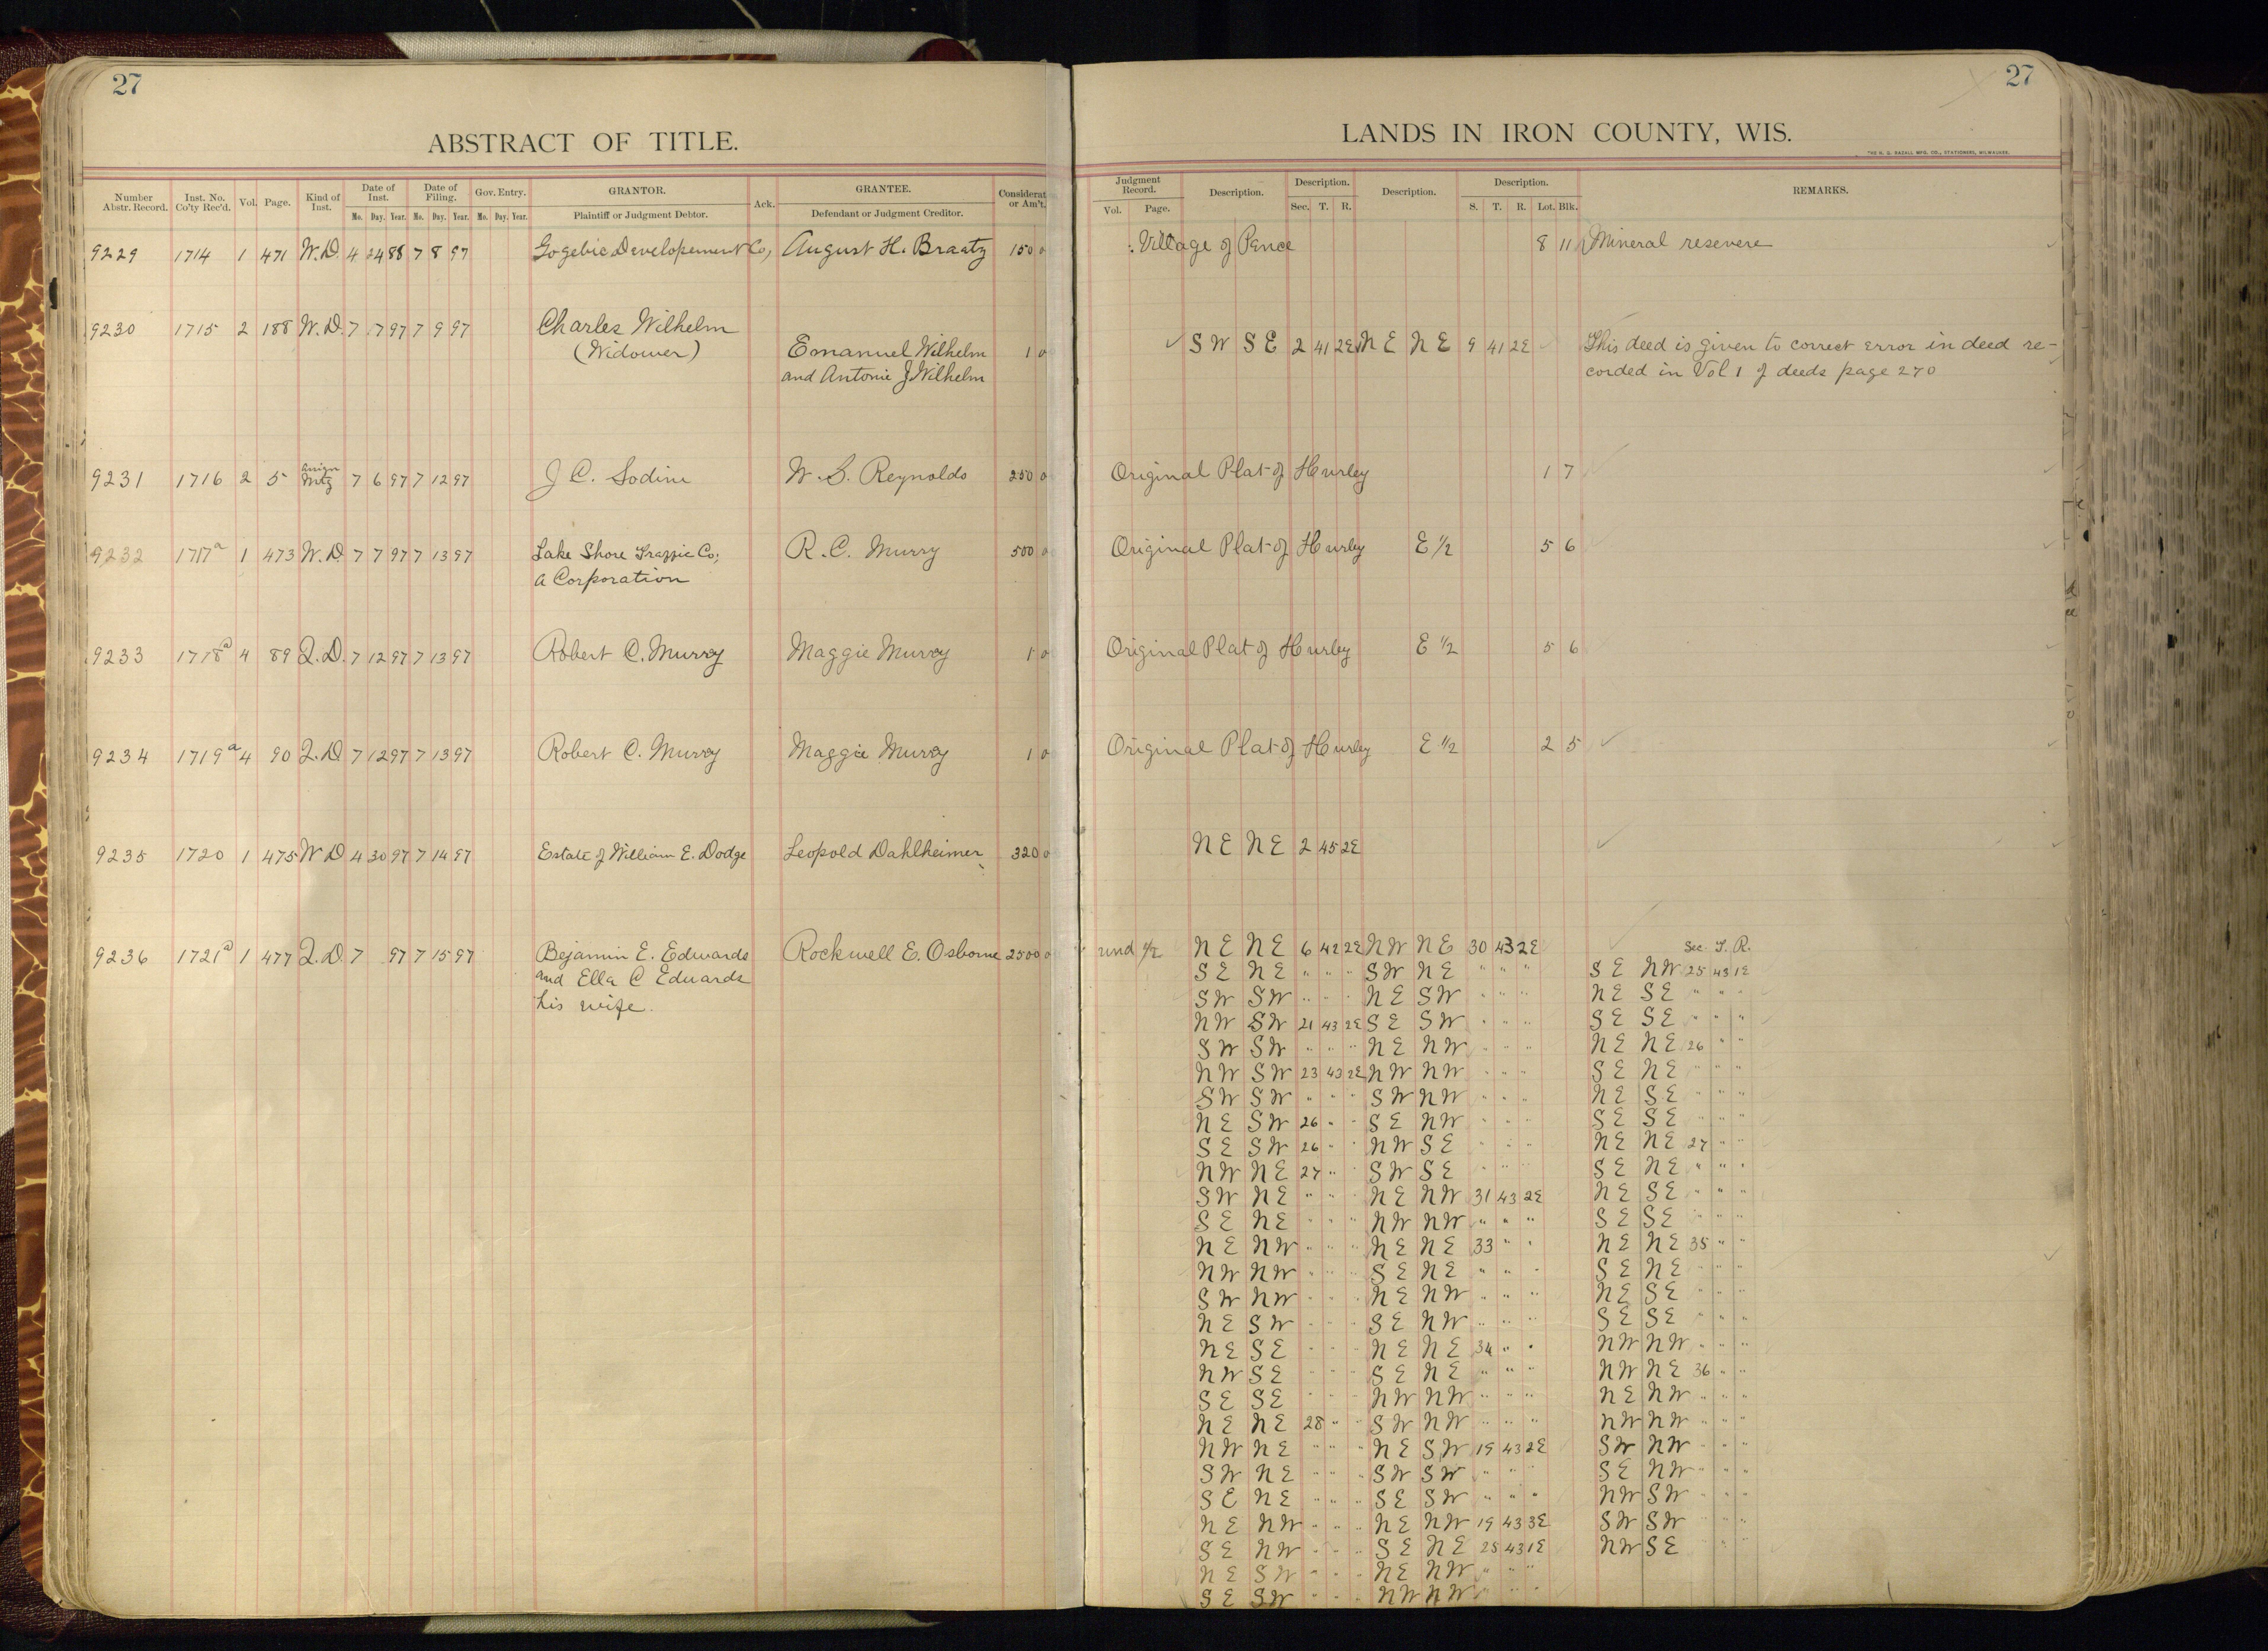 27
ABSTRACT OF TITLE.
Number Abstr. Record. Inst. No. Co'ty Rec'd. Vol. Page. Kind of Inst. Date of Inst. Mo. Day. Year. Date of Filing. Mo. Day. Year. Gov. Entry. Mo. Day. Year. GRANTOR. Plaintiff or Judgment Debtor. Ack. GRANTEE. Defendant or Judgment Creditor. Considerat or Am't.
9229 1714 1 471 W.D. 4 24 88 7 8 97 Gogebic Developement Co, August H. Braatz 150 0
9230 1715 2 188 W.D. 7 7 97 7 9 97 Charles Wilhelm
(Widower) Emanuel Wilhelm 1 0
and Antonie J Wilhelm
9231 1716 2 5 Assign Mtg 7 6 97 7 12 97 J C. Sodini W. S. Reynolds 250 0
9232 1717a 1 473 W.D. 7 7 97 7 13 97 Lake Shore Traffic Co; R. C. Murry 500 0
a Corporation
9233 1718a 4 89 Q.D. 7 12 97 7 13 97 Robert C. Murry Maggie Murry 1 0
9234 1719a 4 90 Q.D 7 12 97 7 13 97 Robert C. Murry Maggie Murry 1 0
9235 1720 1 475 W D 4 30 97 7 14 97 Estate of William E. Dodge Leopold Dahlheimer 320 0
9236 1721a 1 477 Q.D. 7 97 7 15 97 Bejamin E. Edwards Rockwell E. Osborne 2500 0
and Ella C Edwards
his wife.
27
LANDS IN IRON COUNTY, WIS.
THE H. G. RAZALL MFG. CO., STATIONERS, MILWAUKEE.
Judgment Record. Vol. Page. Description. Description. Sec. T. R. Description. Description. S. T. R. Lot. Blk. REMARKS.
Village of Pence 8 11 Mineral resevere
S W S E 2 41 2E N E N E 9 41 2E This deed is given to correct error in deed re-
corded in Vol 1 of deeds page 270
Original Plat of Hurley 1 7
Original Plat of Hurley E 1/2 5 6
Original Plat of Hurley E 1/2 5 6
Original Plat of Hurley E 1/2 2 5
N E N E 2 45 2E
und 1/2 N E N E 6 42 2E N W N E 30 43 2E Sec. T. R.
S E N E " " " S W N E " " " S E N W 25 43 1E
S W S W " " " N E S W " " " N E S E " " "
N W S W 21 43 2E S E S W " " " S E S E " " "
S W S W " " " N E N W " " " N E N E 26 " "
N W S W 23 43 2E N W N W " " " S E N E " " "
S W S W " " " S W N W " " " N E S E " " "
N E S W 26 " " S E N W " " " S E S E " " "
S E S W 26 " " N W S E " " " N E N E 27 " "
N W N E 27 " " S W S E " " " S E N E " " "
S W N E " " " N E N W 31 43 2E N E S E " " "
S E N E " " " N W N W " " " S E S E " " "
N E N W " " " N E N E 33 " " N E N E 35 " "
N W N W " " " S E N E " " " S E N E " " "
S W N W " " " N E N W " " " N E S E " " "
N E S W " " " S E N W " " " S E S E " " "
N E S E " " " N E N E 34 " " N W N W " " "
N W S E " " " S E N E " " " N W N E 36 " "
S E S E " " " N W N W " " " N E N W " " "
N E N E 28 " " S W N W " " " N W N W " " "
N W N E " " " N E S W 19 43 2E S W N W " " "
S W N E " " " S W S W " " " S E N W " " "
S E N E " " " S E S W " " " N W S W " " "
N E N W " " " N E N W 19 43 3E S W S W " " "
S E N W " " " S E N E 25 43 1E N W S E " " "
N E S W " " " N E N W " " "
S E S W " " " N W N W " " "